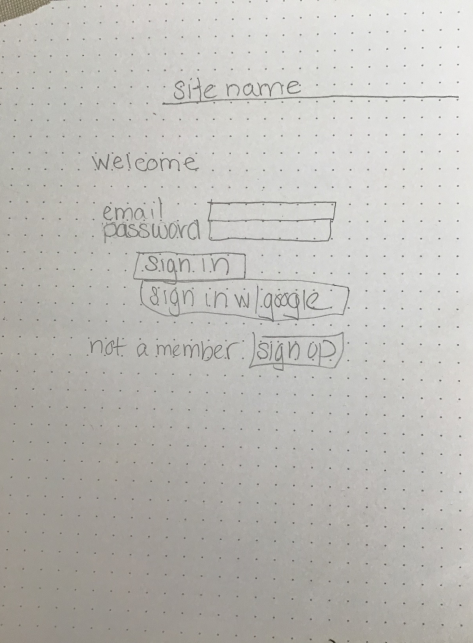 site name
welcome
email
password
sign in
sign in w/ google
not a member sign up